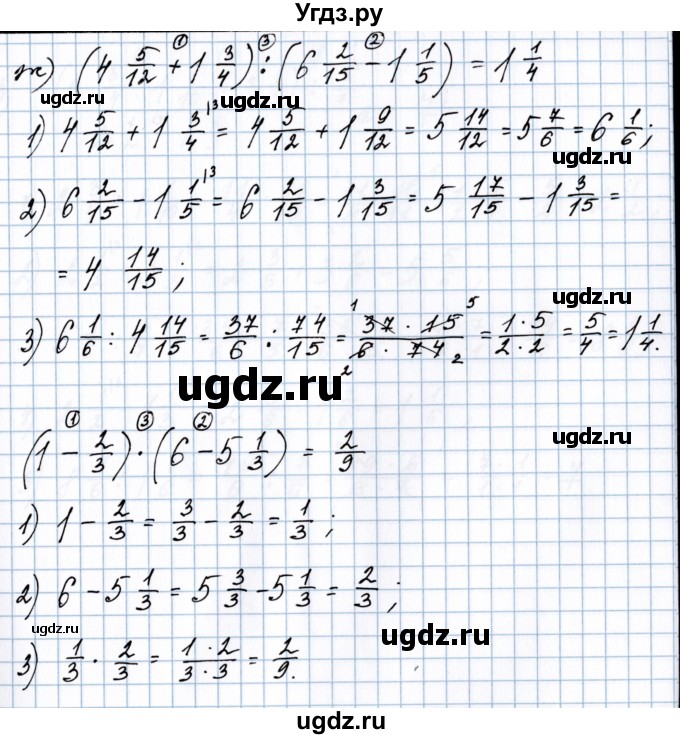 Угдз.ру
ж) (4 5/12 + 1 3/4) : (6 2/15 − 1 1/5) = 1 1/4
1 3 2
ugdz.ru ugdz.ru
1) 4 5/12 + 1 3/4 |3 = 4 5/12 + 1 9/12 = 5 14/12 = 5 7/6 = 6 1/6;
ugdz.ru
2) 6 2/15 − 1 1/5 |3 = 6 2/15 − 1 3/15 = 5 17/15 − 1 3/15 =
= 4 14/15;
ugdz.ru
3) 6 1/6 : 4 14/15 = 37/6 : 74/15 = 37 · 15 / 6 · 74 = 1·5 / 2·2 = 5/4 = 1 1/4.
1 5 2 2
ugdz.ru ugdz.ru
1 3 2
(1 − 2/3) · (6 − 5 1/3) = 2/9
ugdz.ru
1) 1 − 2/3 = 3/3 − 2/3 = 1/3;
2) 6 − 5 1/3 = 5 3/3 − 5 1/3 = 2/3;
ugdz.ru ugdz.ru
3) 1/3 · 2/3 = 1·2 / 3·3 = 2/9.
ugdz.ru
ugdz.ru